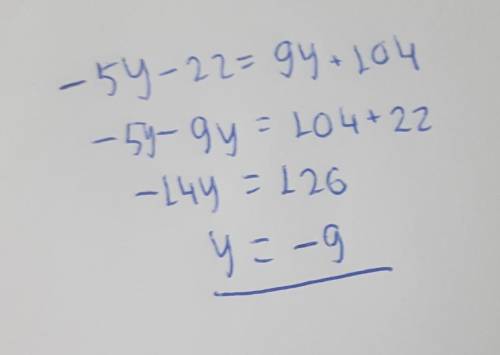 -5y-22=9y+104
-5y-9y=104+22
-14y=126
y=-9